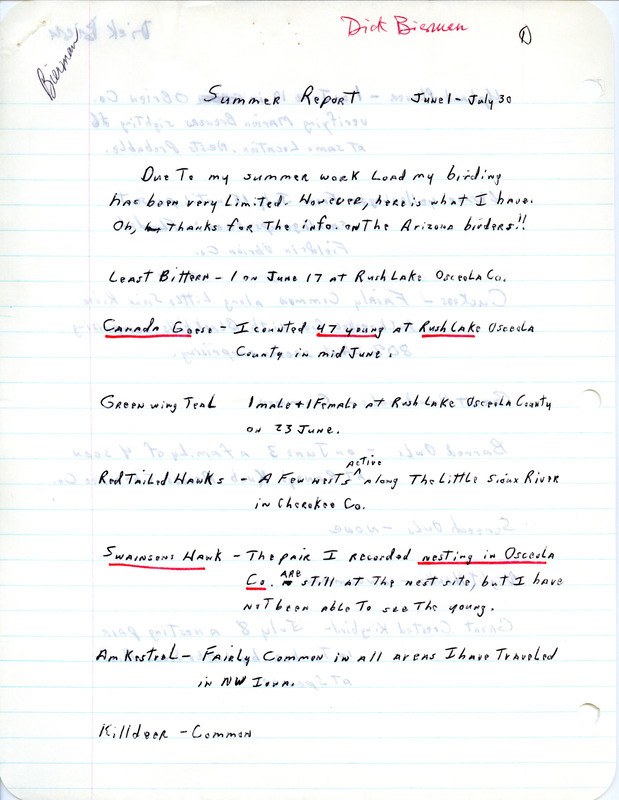 Dick Bierman
1
Bierman
Summer Report June 1 - July 30
Due To my summer work Load my birding
has been very Limited. However, here is what I have.
Oh, thanks for The info. on The Arizona birders!!
Least Bittern - 1 on June 17 at Rush Lake Osceola Co.
Canada Geese - I counted 47 young at Rush Lake Osceola
County in mid June.
Green wing Teal 1 male + 1 Female at Rush Lake Osceola County
on 23 June.
Red Tailed Hawks - A Few nests active along The Little Sioux River
in Cherokee Co.
Swainsons Hawk - The pair I recorded nesting in Osceola
Co. ARE still at The nest site, but I have
not been able To see The young.
Am Kestral - Fairly Common in all areas I have Traveled
in NW Iowa.
Killdeer - Common